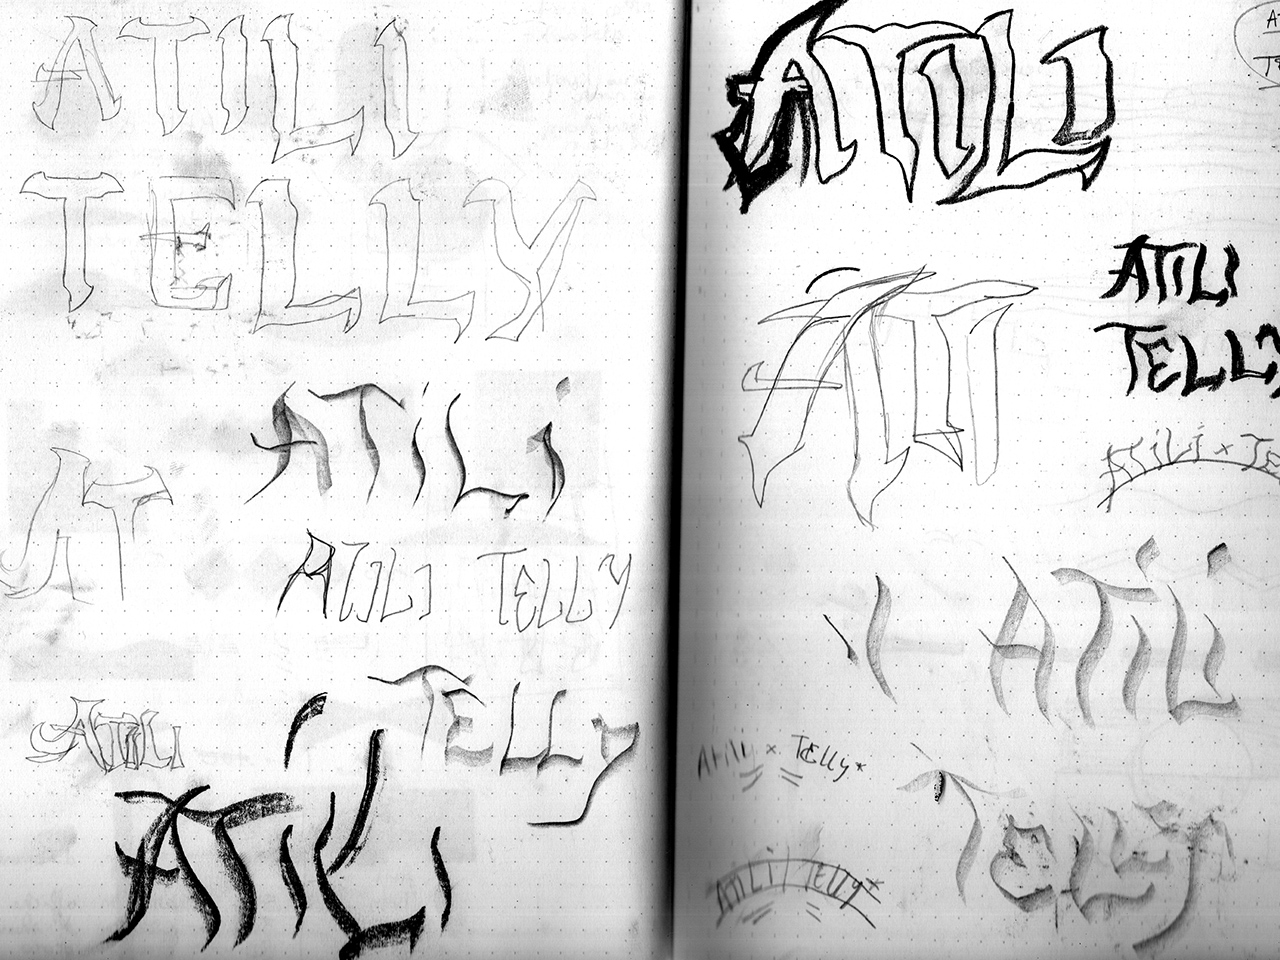 ATILI
TELLY
AT
ATiLi
ATILI TELLY
ATILI
TELLY
ATILI
ATILI
ATI
ATILI
TELLY
ATiLi × TE
ATiLi
Atili × Telly*
ATILI TELLY*
TeLLy
A
TE